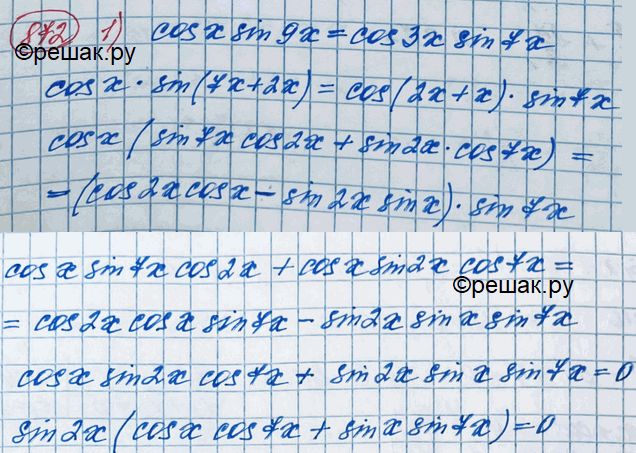 872 1) cos x sin 9x = cos 3x sin 7x
©решак.ру
cos x · sin(7x+2x) = cos(2x+x) · sin 7x
cos x (sin 7x cos 2x + sin 2x · cos 7x) =
= (cos 2x cos x - sin 2x sin x) · sin 7x
cos x sin 7x cos 2x + cos x sin 2x cos 7x =
©решак.ру
= cos 2x cos x sin 7x - sin 2x sin x sin 7x
cos x sin 2x cos 7x + sin 2x sin x sin 7x = 0
sin 2x (cos x cos 7x + sin x sin 7x) = 0